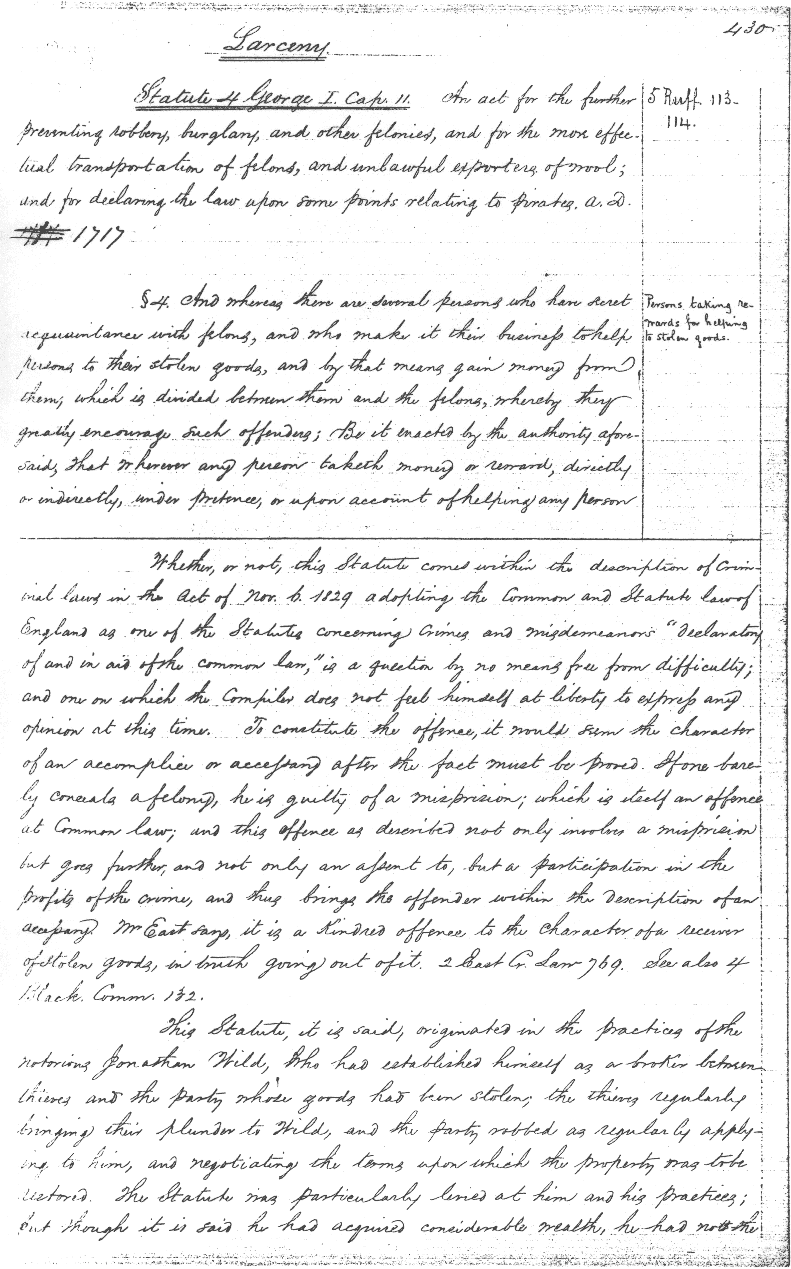 430
Larceny.
Statute 4 George I. Cap. 11. An act for the further
preventing robbery, burglary, and other felonies, and for the more effec-
tual transportation of felons, and unlawful exporters of wool;
and for declaring the law upon some points relating to pirates. A. D.
1717
5 Ruff. 113-
114.
§ 4. And whereas there are several persons who have secret
acquaintance with felons, and who make it their business to help
persons to their stolen goods, and by that means gain money from
them, which is divided between them and the felons, whereby they
greatly encourage such offenders; Be it enacted by the authority afore-
said, that wherever any person taketh money or reward, directly
or indirectly, under pretence, or upon account of helping any person
Persons taking re-
wards for helping
to stolen goods.
Whether, or not, this Statute comes within the description of Crim-
inal laws in the Act of Nov. 6. 1829 adopting the Common and Statute law of
England as one of the Statutes concerning Crimes and misdemeanors "declaratory
of and in aid of the common law," is a question by no means free from difficulty;
and one on which the Compiler does not feel himself at liberty to express any
opinion at this time. To constitute the offence, it would seem the character
of an accomplice or accessary after the fact must be proved. If one bare-
ly conceals a felony, he is guilty of a misprision; which is itself an offence
at Common law; and this offence as described not only involves a misprision
but goes further, and not only an assent to, but a participation in the
profits of the crime, and thus brings the offender within the description of an
accessary. Mr East says, it is a kindred offence to the character of a receiver
of stolen goods, in truth going out of it. 2 East Cr. Law 769. See also 4
Black. Comm. 132.
This Statute, it is said, originated in the practices of the
notorious Jonathan Wild, who had established himself as a broker between
thieves and the party whose goods had been stolen; the thieves regularly
bringing their plunder to Wild, and the party robbed as regularly apply-
ing to him, and negotiating the terms upon which the property was to be
restored. The Statute was particularly levied at him and his practices;
but though it is said he had acquired considerable wealth, he had not the